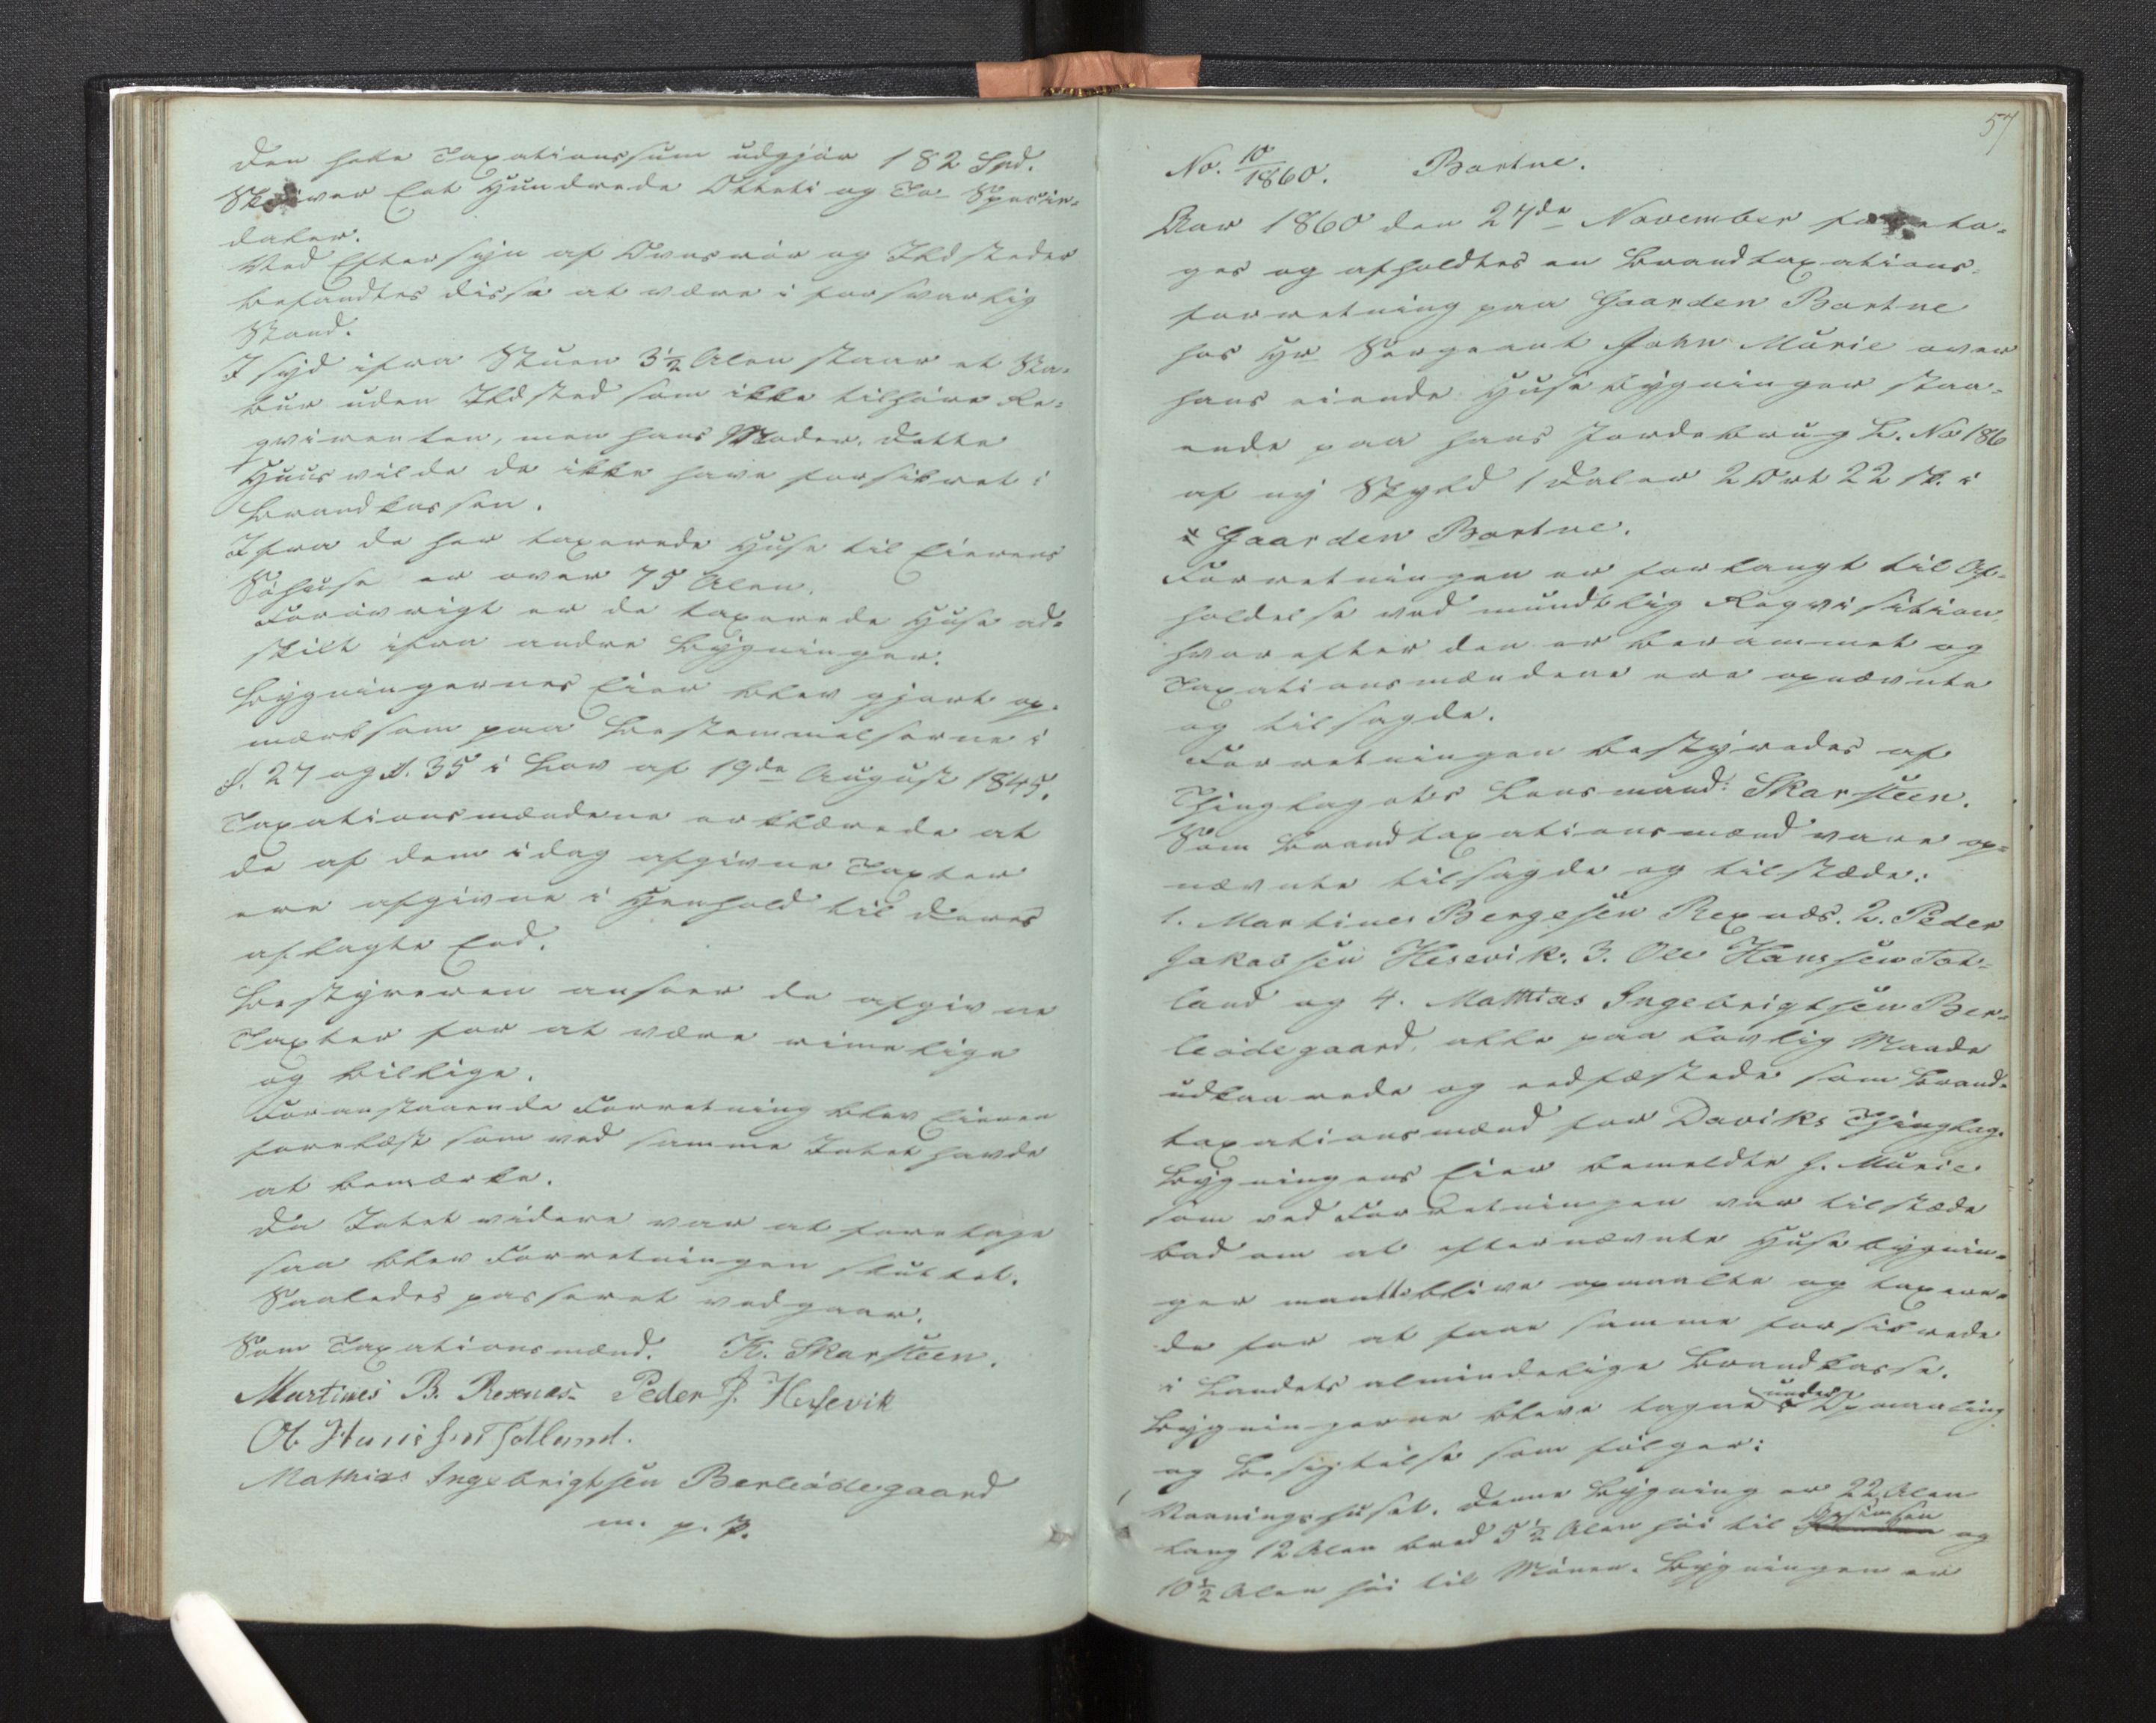 den hele Taxationssum udgjör 182 Spd.
Skriver Eet Hundrede Otteti og To Specie-
daler.
Ved Eftersyn af Ovnsrör og Ildsteder
befandtes disse at være i forsvarlig
Stand.
I syd ifra Stuen 3½ Alen staar et Sta-
bur uden Ildsted som ikke tilhöre Re-
qvirenten, men hans Moder. dette
Huus vilde de ikke have forsikret i
Brandkassen.
Ifra de her taxerede Huse til Eierens
Söhuse er over 75 Alen.
Forövrigt er de taxerede Huse ad-
skilt ifra andre Bygninger.
Bygningernes Eier blev gjort op-
mærksom paa Bestemmelserne i
§. 27 og §. 35 i Lov af 19de August 1845.
Taxationsmændene erklærede at
de af dem idag afgivne Taxter
ere afgivne i Henhold til deres
aflagte Eed.
Bestyreren anseer de afgivne
Taxter for at være rimelige
og billige.
Foranstaaende Forretning blev Eieren
forelæst som ved samme Intet havde
at bemærke.
Da Intet videre var at foretage
saa blev Forretningen sluttet.
Saaledes passeret vedgaar.
Som Taxationsmænd. K. Skarsteen.
Martines B. Rexnæs. Peder J. Hesevik
Ol. Hanssen Totland.
Mathias Ingebrigtsen Berleödegaard
m. p. P.
57
No. 10/1860. Bortne.
Aar 1860 den 27de November foreta-
ges og afholdtes en Brandtaxations-
forretning paa Gaarden Bortne
hos Hr Sergeant John Mürie over
hans eiende Husebygninger staa-
ende paa hans Jordebrug L. No 186
af ny Skyld 1 Daler 2 Ort 22 sk. i
Gaarden Bortne.
Forretningen er forlangt til Af-
holdelse ved mundtlig Reqvisition,
hvorefter den er berammet og
Taxationsmændene ere opnævnte
og tilsagde.
Forretningen bestyredes af
Thinglagets Lensmand: Skarsteen.
Som Brandtaxationsmænd vare op-
nævnte tilsagde og tilstæde:
1. Martines Bergesen Rexnæs. 2. Peder
Jakobsen Hesevik. 3. Ole Hanssen Tot-
land og 4. Mathias Ingebrigtsen Ber-
leödegaard, alle paa lovlig Maade
udkaarede og eedfæstede som Brand-
taxationsmænd for Daviks Thinglag.
Bygningens Eier bemeldte J. Mürie
som ved Forretningen var tilstæde
bad om at efternævnte Husebygnin-
ger maatte blive opmaalte og taxere-
de for at faae samme forsikrede
i Landets almindelige Brandkasse.
Bygningerne bleve tagne under Opmaaling
og Besigtelse som fölger:
Vaaningshuset. denne Bygning er 22 Alen
lang 12 Alen bred 5½ Alen höi til Gesimsen og
10½ Alen höi til Mönen. Bygningen er